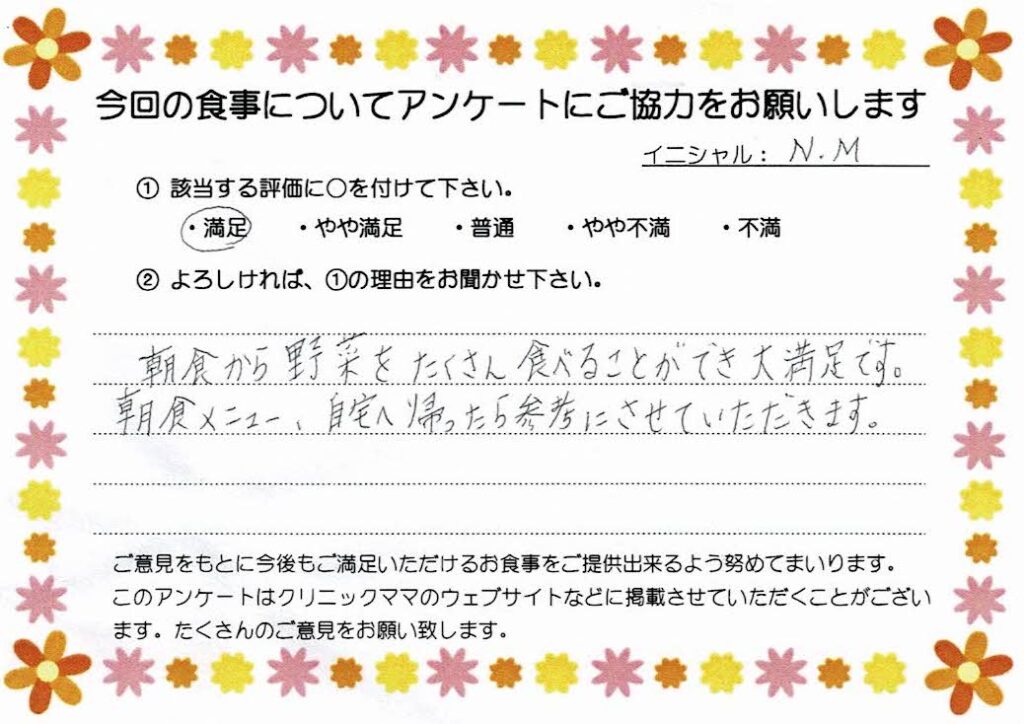 今回の食事についてアンケートにご協力をお願いします
イニシャル： N.M
① 該当する評価に○を付けて下さい。
・満足 ・やや満足 ・普通 ・やや不満 ・不満
② よろしければ、①の理由をお聞かせ下さい。
朝食から野菜をたくさん食べることができ大満足です。
朝食メニュー、自宅へ帰ったら参考にさせていただきます。
ご意見をもとに今後もご満足いただけるお食事をご提供出来るよう努めてまいります。
このアンケートはクリニックママのウェブサイトなどに掲載させていただくことがござい
ます。たくさんのご意見をお願い致します。